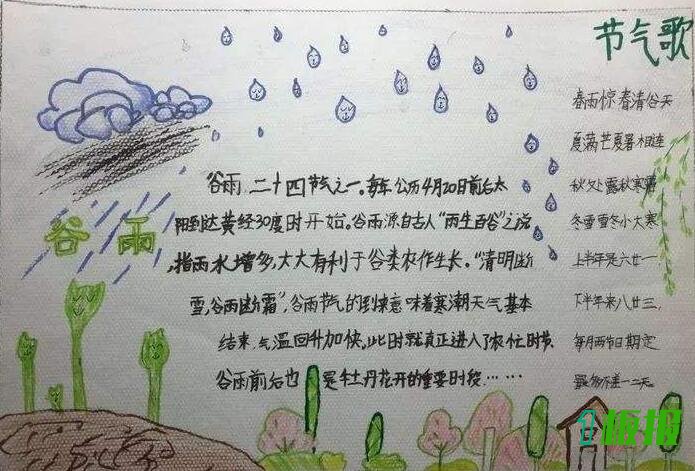 节气歌
春雨惊春清谷天
夏满芒夏暑相连
秋处露秋寒霜
冬雪雪冬小大寒
上半年是六廿一
下半年来八廿三
每月两节日期定
最多只差一二天。
谷雨
谷雨,二十四节气之一。每年公历4月20日前后太
阳到达黄经30度时开始。谷雨源自古人“雨生百谷”之说
,指雨水增多,大大有利于谷类农作生长。“清明断
雪,谷雨断霜”,谷雨节气的到来意味着寒潮天气基本
结束,气温回升加快,此时就真正进入了农忙时节
谷雨前后也是牡丹花开的重要时段……
板报